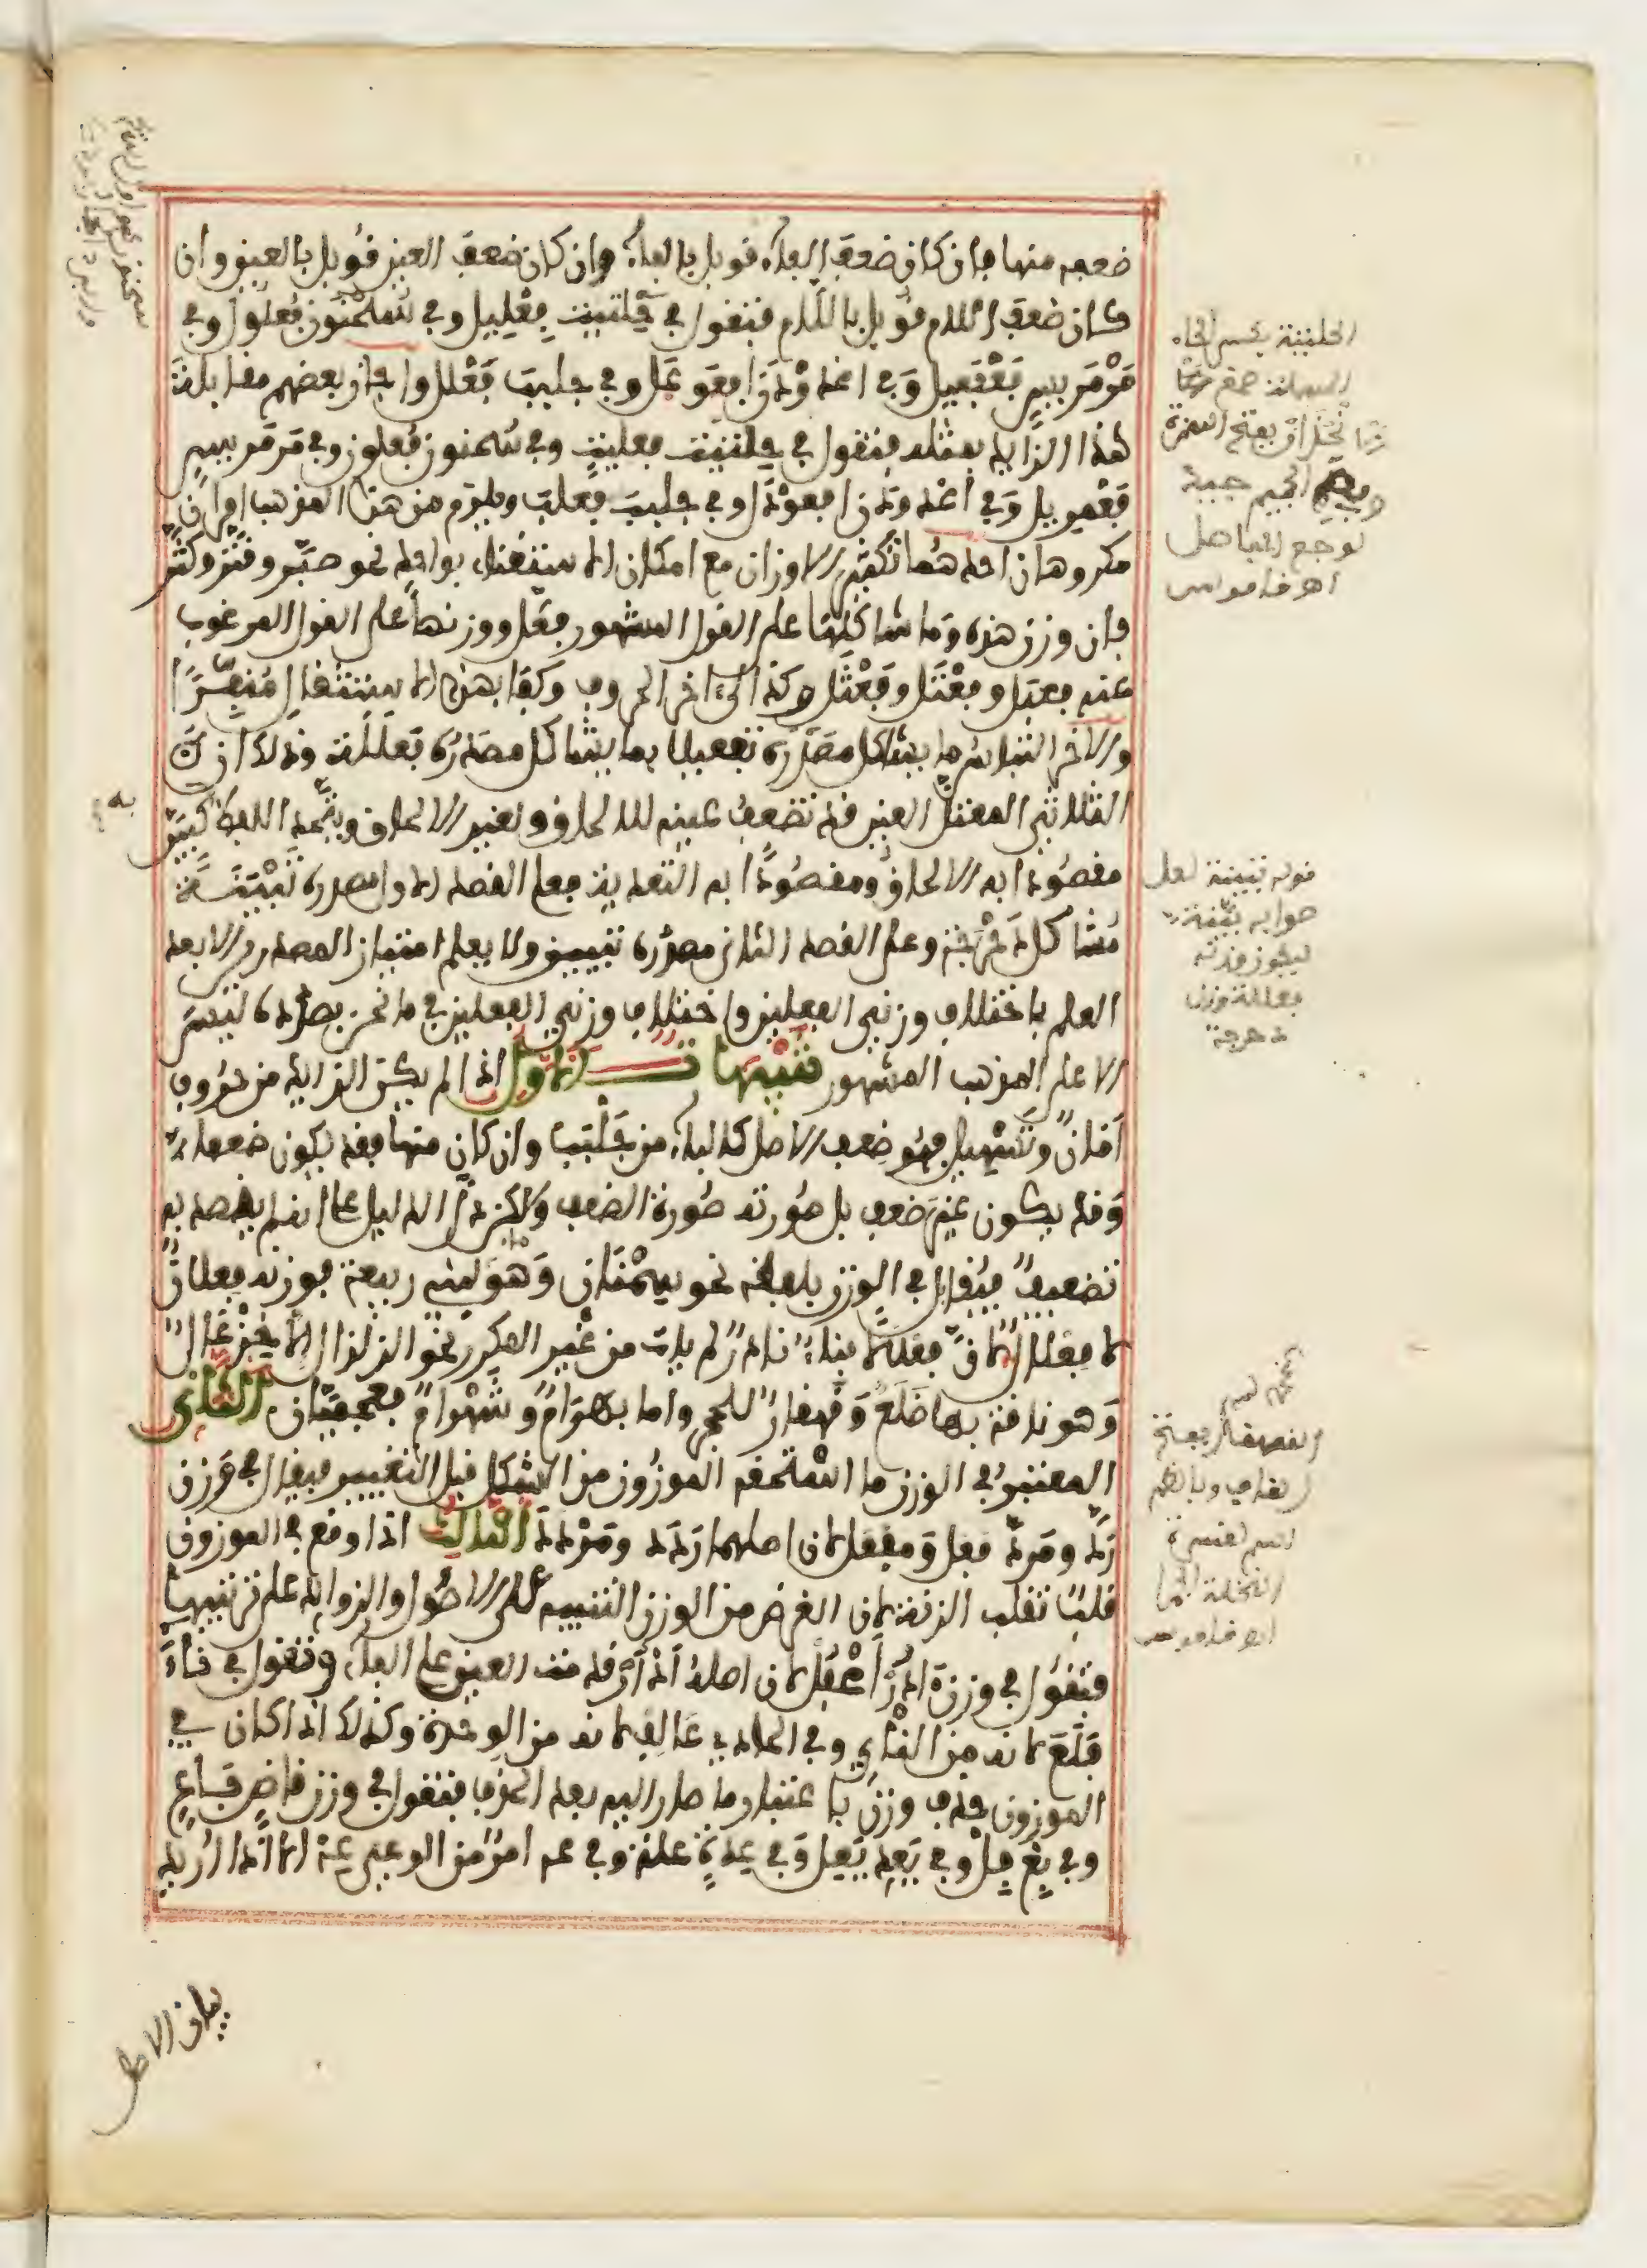 ضعفه منها فإن كان ضعف الفاء قوبل بالفاء وإن كان ضعف العين قوبل بالعين وإن
كان ضعف اللام قوبل باللام فتقول في حلتيت فعليل وفي سُحْنُون فُعْلُول وفي
مَرْمَرِيس فَعْفَعِيل وفي اغدودن افعوعل وفي جلبب فعلل وأجاز بعضهم مقابلة
هذا الزايد بمثله فتقول في حلتيت فعليت وفي سحنون فعلون وفي مرمريس
فعمريل وفي اغدودن افعودل وفي جلبب فعلب ويلزم من هذا المذهب امران
مكروهان احدهما تكثير الاوزان مع امكان الاستغناء بواحد نحو صبّر وقتّر وكثّر
فإن وزن هذه وما شاكلها على القول المشهور فعّل ووزنها على القول المرغوب
عنه فعبل وفعتل وفعثل وكذا الى اخر الحروف وكفا بهذا الاستثقال مُنَفِّرًا
والاخر التباس ما يشاكل مصدره تفعيلا بما يشاكل مصدره فعللة وذلك ان
الثلاثي المعتل العين قد تضعف عينه للالحاق ولغير الالحاق ويتحد اللفظ كبيّن
مقصودا به الالحاق ومقصودا به التعدية فعلى القصد الاول مصدره تَبْيَنَة
مُشاكل دَحْرَجة وعلى القصد الثاني مصدره تبيين ولا يعلم امتياز المصدرين الا بعد
العلم باختلاف وزني الفعلين واختلاف وزني الفعلين في ما نحن بصدده ليس
الا على المذهب المشهور تنبيهات الاول اذا لم يكن الزايد من حروف
أمانٌ وتسهيل فهو ضعف الاصل كالباء من جلبب وان كان منها فقد يكون ضعفا
وقد يكون غير ضعف بل صورته صورة الضعف ولاكن دل الدليل على انه لم يقصد به
تضعيف فيقابل في الوزن بلفظه نحو سَمْنان وهو ماء لبني ربيعة فوزنه فعلان
لا فعلال لان فعلالا بناء نادر لم يات من غير المكرر نحو الزلزال الا خَزْعال
وهو ناقة بها ضلع وقهقار للحجر واما بهرام وشهرام فعجميان الثاني
المعتبر في الوزن ما استحقه الموزون من الشكل قبل التغيير فيقال في وزن
ردّ ومردّ فعل ومفعل لان اصلهما ردد ومردد الثالث اذا وقع في الموزون
قلب تقلب الزنة لان الغرض من الوزن التنبيه على الاصول والزوايد على ترتيبها
فتقول في وزن آدُر أَعْفُل لان اصله أَدْوُر قدمت العين على الفاء وتقول في ناء
فلع لانه من النأي وفي الحادي عالف لانه من الوحدة وكذلك اذا كان في
الموزون حذف وزن باعتبار ما صار اليه بعد الحذف فتقول في وزن قاض فاع
وفي بع فل وفي يعد يعل وفي عدة علة وفي عه امر من الوعي عه الا اذا اريد
الحلتيتة بكسر الحاء
المهملة صمغ
الانجدان بفتح الهمزة
وضم الجيم جيد
لوجع المفاصل
اهـ قاموس
به
قوله تبينة لعل
صوابه بينة
ليكون وزنه
فعللة وزن
دحرجة
القهقار بفتح
القاف وبالضم
اهـ قاموس
بيان الاصل